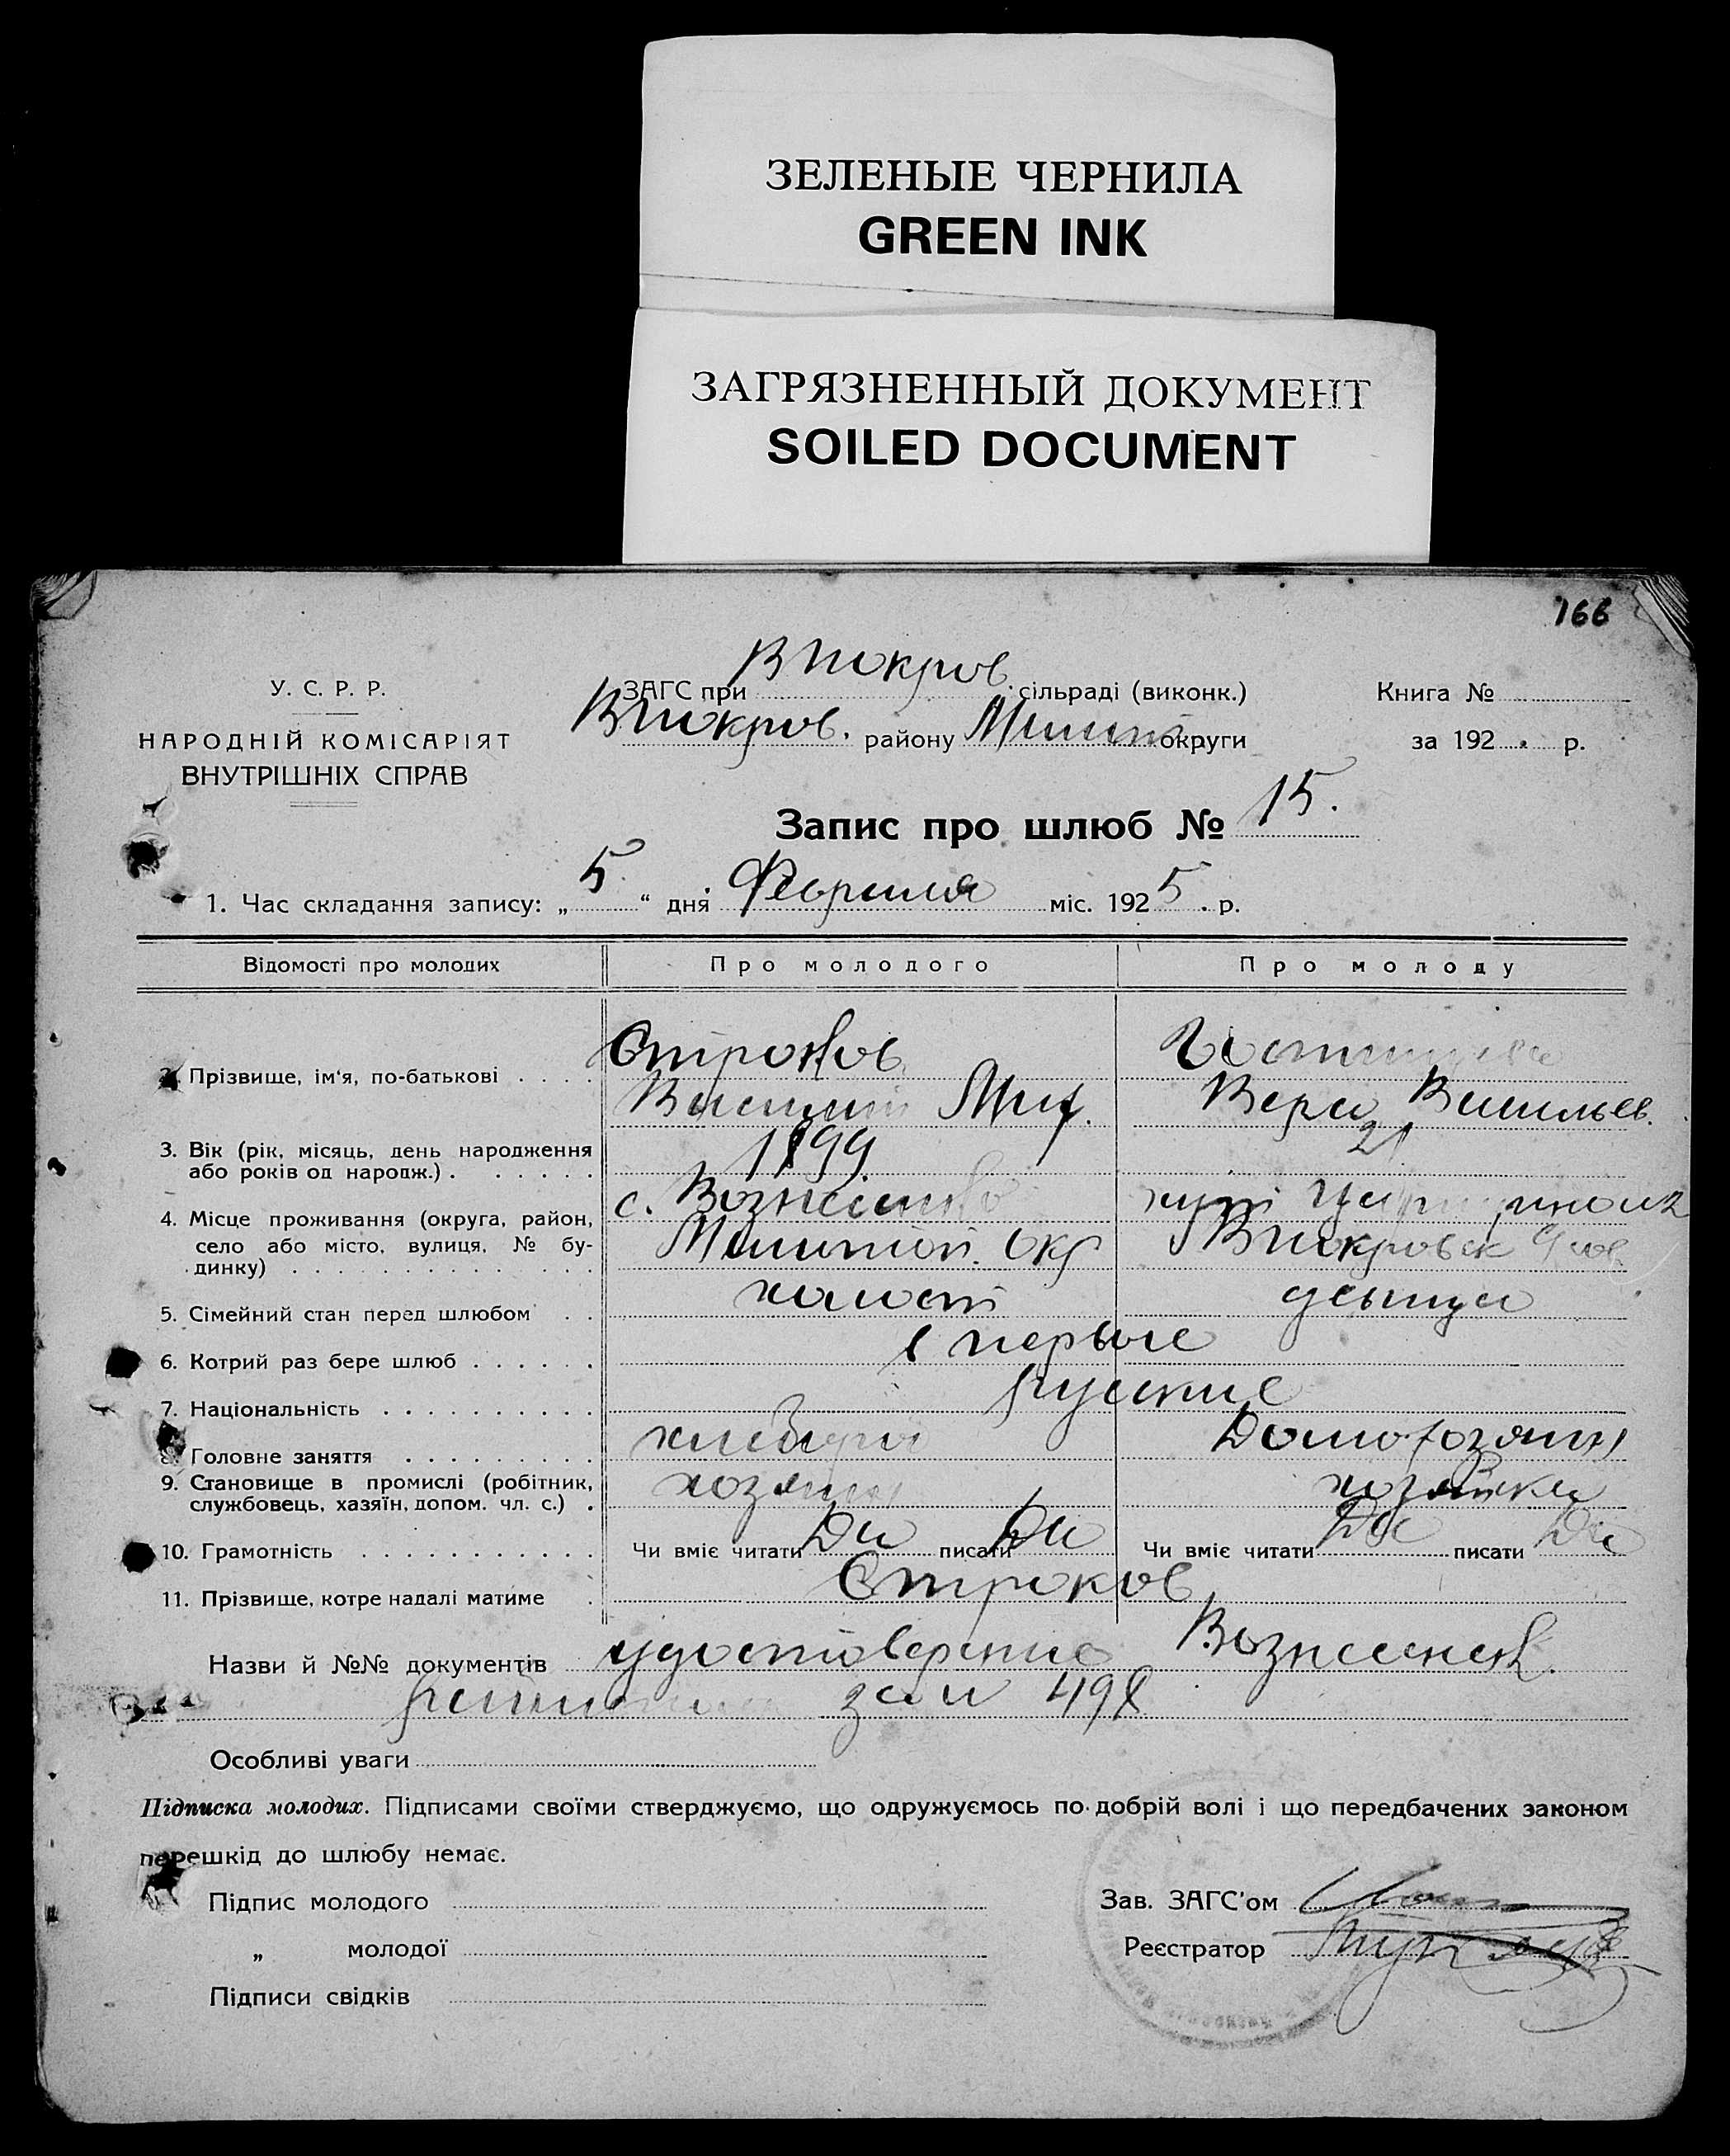 ЗЕЛЕНЫЕ ЧЕРНИЛА
GREEN INK
ЗАГРЯЗНЕННЫЙ ДОКУМЕНТ
SOILED DOCUMENT
166
У. С. Р. Р.
НАРОДНІЙ КОМІСАРІЯТ
ВНУТРІШНІХ СПРАВ
ЗАГС при В Покров. сільраді (виконк.)
В Покров. району Мелит округи
Книга №
за 192 . р.
Запис про шлюб № 15.
1. Час складання запису: „ 5 “ дня Февраля міс. 1925 . р.
Відомості про молодих Про молодого Про молоду
2. Прізвище, ім‘я, по-батькові . . . . Строков
Василий Мит. Вера Васильев.
3. Вік (рік, місяць, день народження
або років од нарордж.) . . . . . . 1899 21
4. Місце проживання (округа, район,
село або місто, вулиця, № бу-
динку) . . . . . . . . . . . . . .
с. Вознесенка хут
Мелитоп. Окр В Покровск
5. Сімейний стан перед шлюбом . . холост девица
6. Котрий раз бере шлюб . . . . . . в первые
7. Національність . . . . . . . . . . русские
8. Головне заняття . . . . . . . . . хлебороб Домохозяин
9. Становище в промислі (робітник,
службовець, хазяїн, допом. чл. с.) . хозяин хозяйка
10. Грамотність . . . . . . . . . . . Чи вміє читати Да писати Да Чи вміє читати Да писати Да
11. Прізвище, котре надалі матиме . Строков
Назви й №№ документів удостоверение Вознесенск.
за № 498
Особливі уваги
Підписка молодих. Підписами своїми стверджуємо, що одружуємось по добрій волі і що передбачених законом
перешкід до шлюбу немає.
Підпис молодого
„ молодої
Підписи свідків
Зав. ЗАГС'ом
Реєстратор